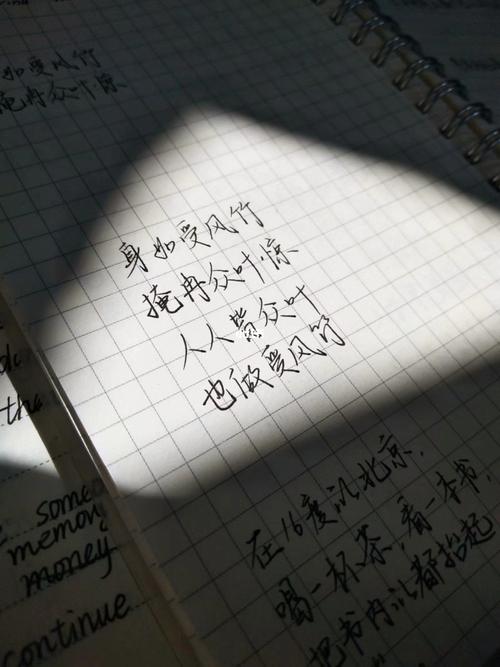 身如受风竹
掩冉众叶惊
身如受风竹
掩冉众叶惊
人人赞众叶
也做受风竹
在16度的北京,
喝一杯茶,看一本书,
把书内的都抬起
the
some
memory
money
continue